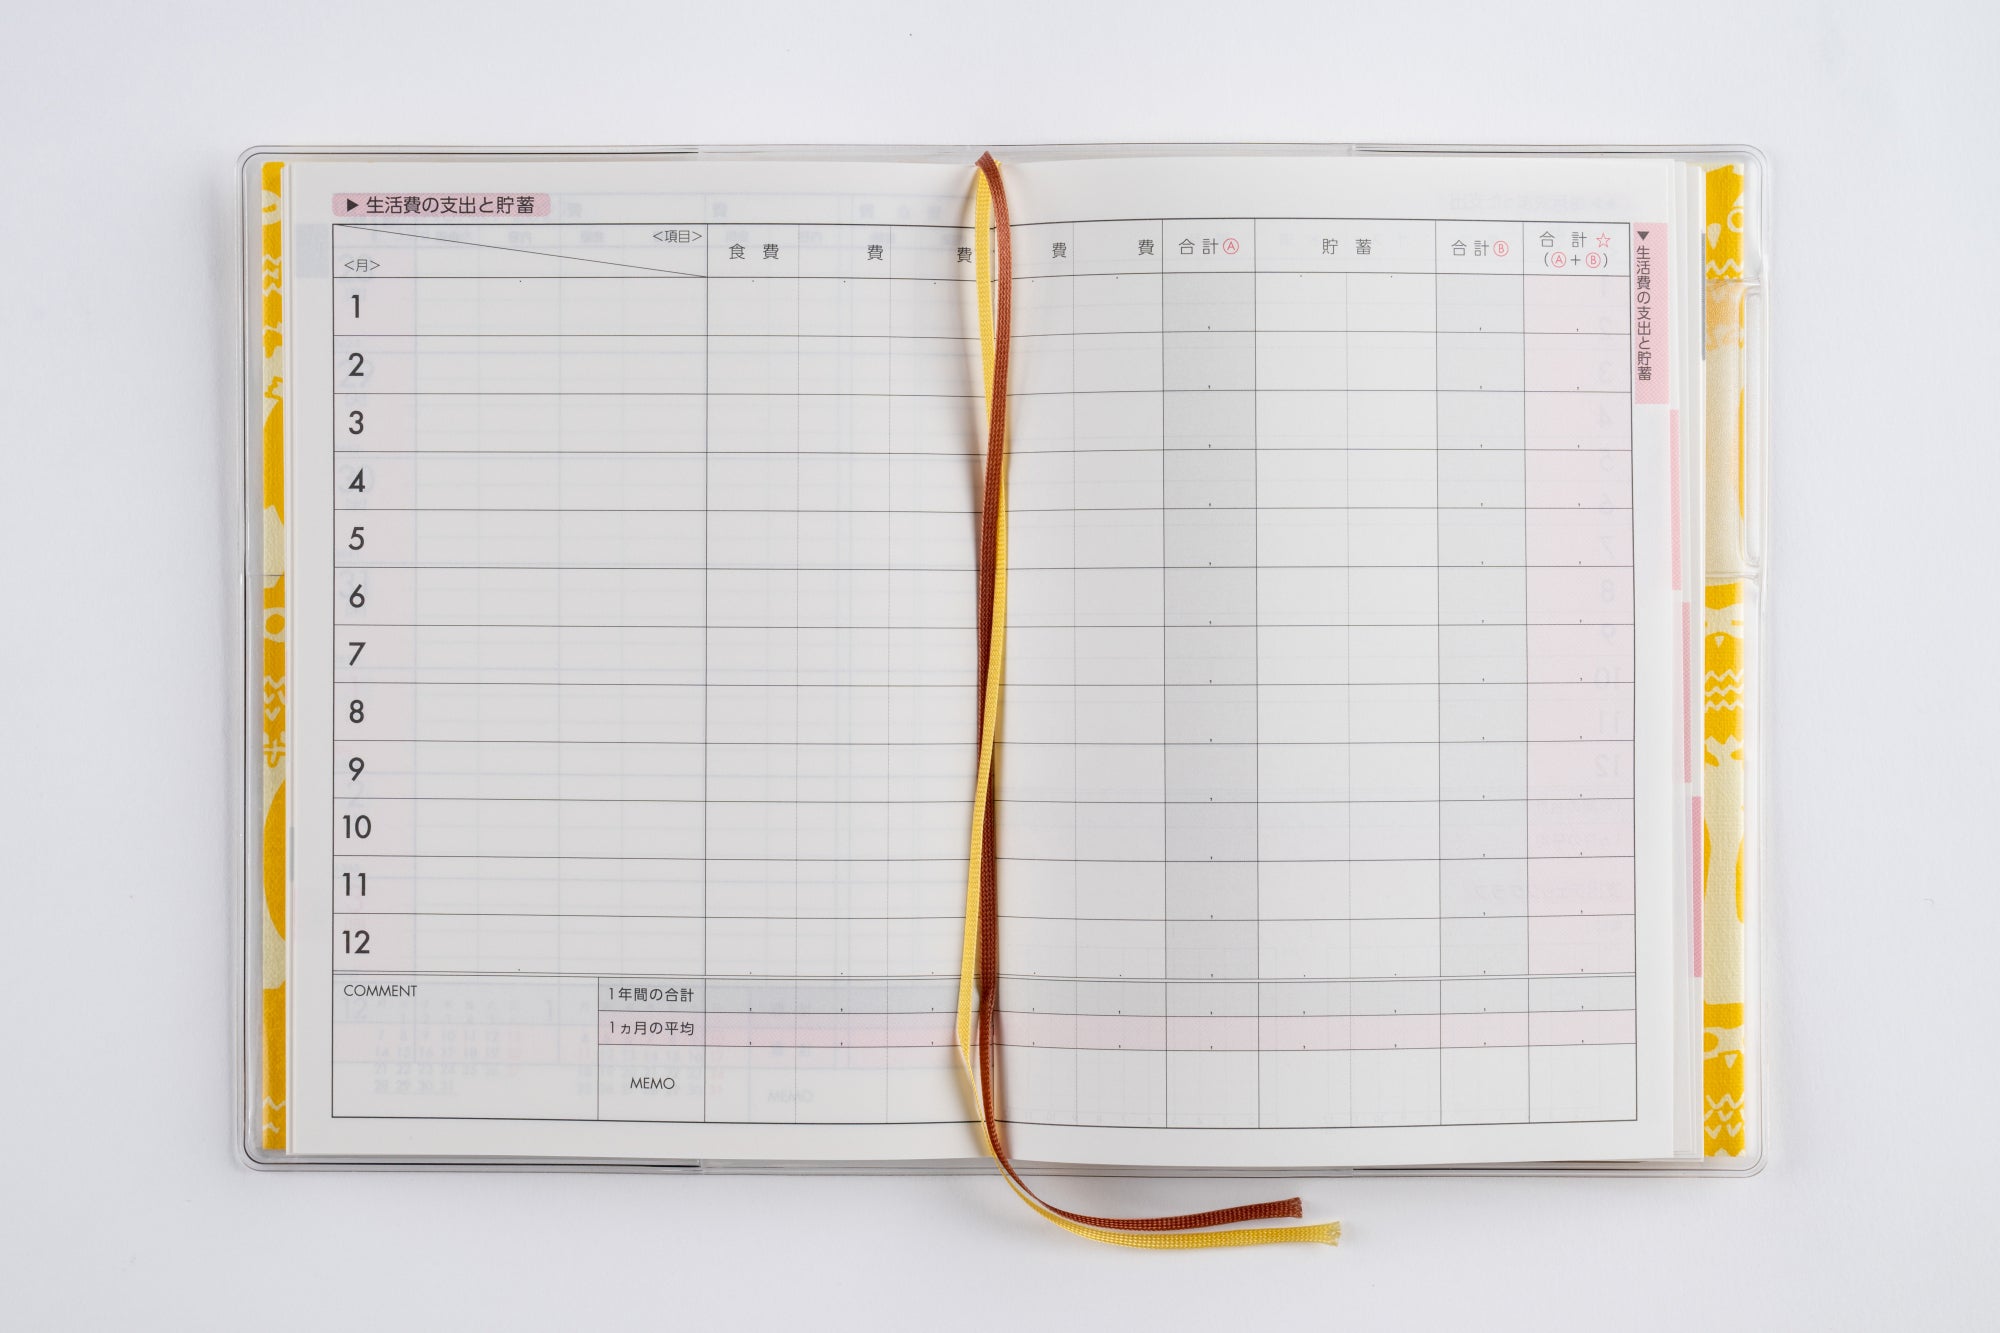 ▶生活費の支出と貯蓄
<項目>
<月>
食 費 費 費 費 費 合計Ⓐ 貯 蓄 合計Ⓑ 合 計☆
(Ⓐ+Ⓑ)
1
2
3
4
5
6
7
8
9
10
11
12
COMMENT
1年間の合計
1ヵ月の平均
MEMO
▼生活費の支出と貯蓄